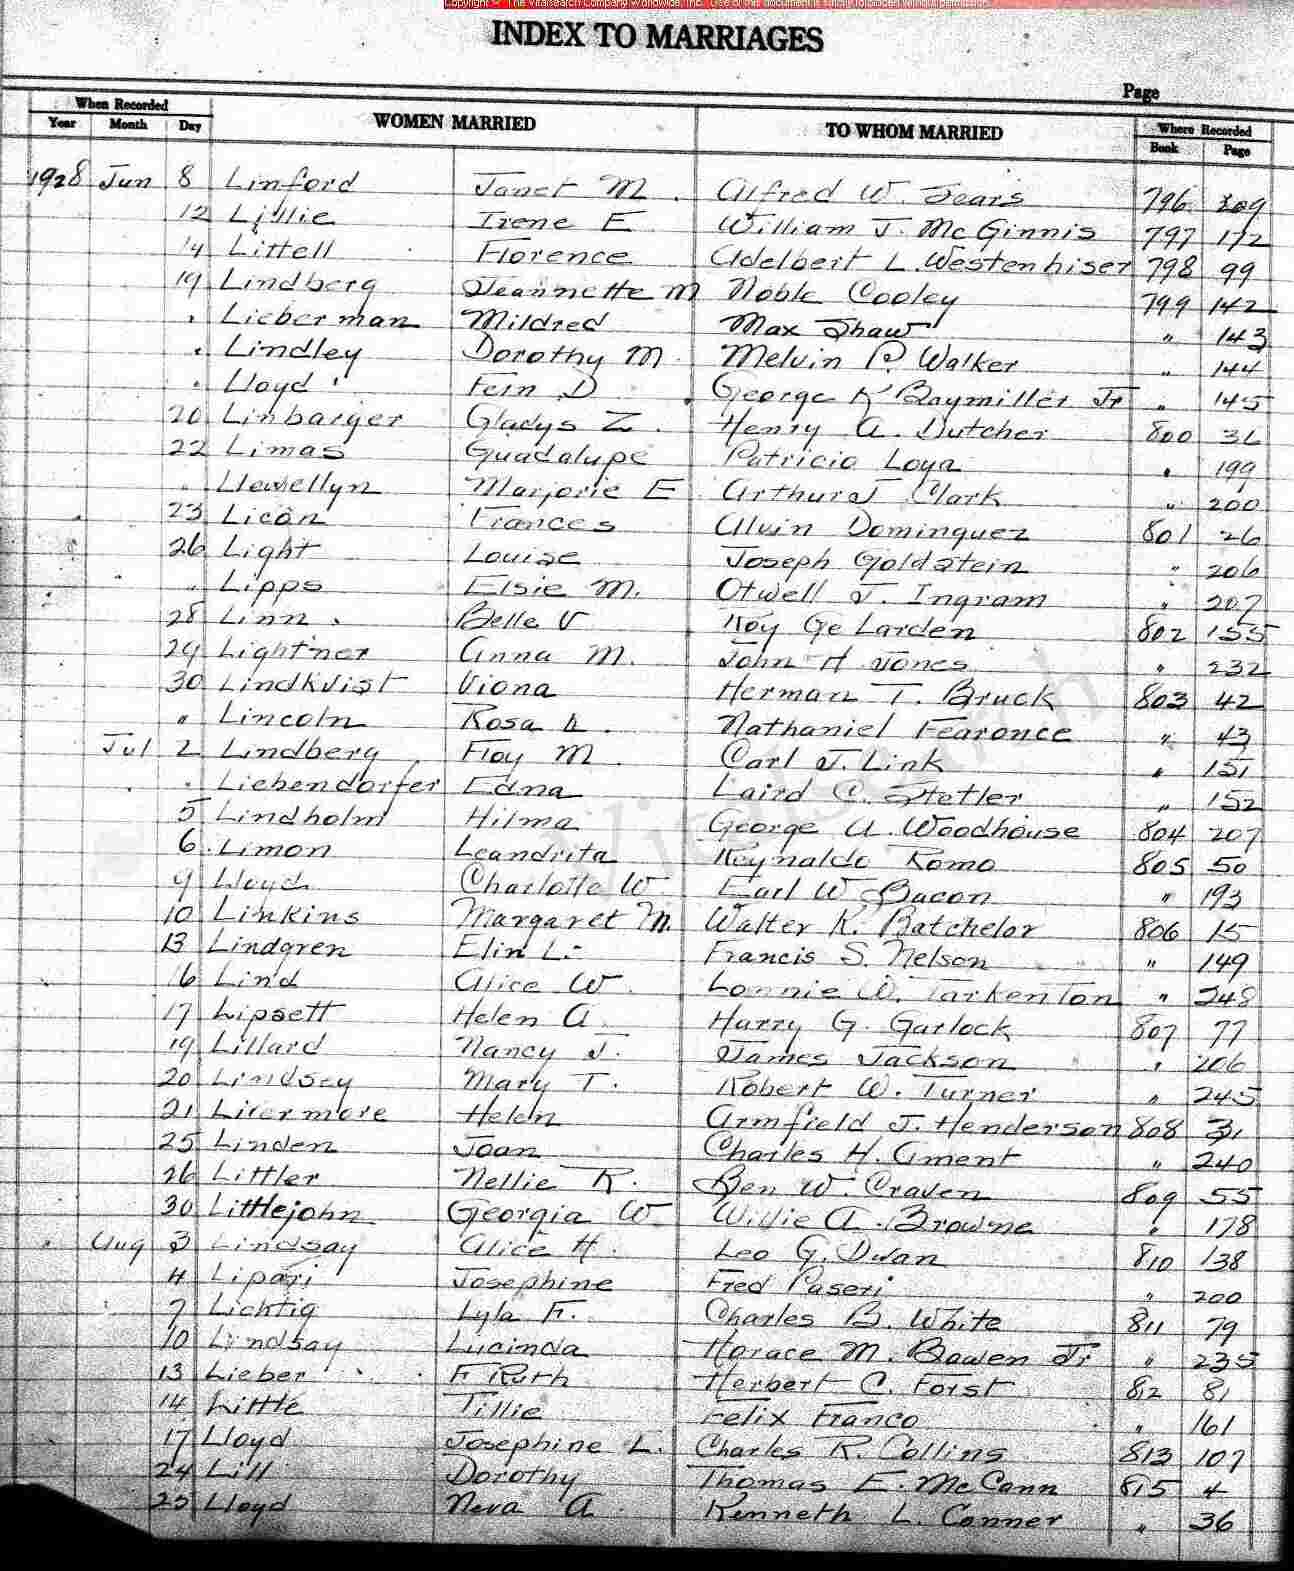 Copyright © The Vitalsearch Company Worldwide, Inc. Use of this document is strictly forbidden without permission.
INDEX TO MARRIAGES
Page
When Recorded WOMEN MARRIED TO WHOM MARRIED Where Recorded
Year Month Day Book Page
1928 Jun 8 Linford Janet M. Alfred W. Sears 796 209
12 Lillie Irene E William J. McGinnis 797 172
14 Littell Florence Adelbert L. Westenhiser 798 99
19 Lindberg Jeannette M Noble Cooley 799 142
" Lieberman Mildred Max Shaw " 143
" Lindley Dorothy M. Melvin P. Walker " 144
" Lloyd Fern D George K Baymiller Jr " 145
20 Linbarger Gladys Z. Henry A. Dutcher 800 36
22 Limas Guadalupe Patricio Loya " 199
" Llewellyn Marjorie E Arthur J Clark " 200
23 Licon Frances Alvin Dominguez 801 26
26 Light Louise Joseph Goldstein " 206
" Lipps Elsie M. Otwell J. Ingram " 207
28 Linn Belle V Roy Ge Larden 802 155
29 Lightner Anna M. John H Jones " 232
30 Lindkvist Viona Herman T. Bruck 803 42
" Lincoln Rosa Nathaniel Fearonce " 43
Jul 2 Lindberg Floy M. Carl J. Link " 151
" Liebendorfer Edna Laird C. Stetler " 152
5 Lindholm Hilma George A. Woodhouse 804 207
6 Limon Leandrita Reynaldo Romo 805 50
9 Lloyd Charlotte W. Earl W. Bacon " 193
10 Linkins Margaret M. Walter K. Batchelor 806 15
13 Lindgren Elin L. Francis S. Nelson " 149
16 Lind Alice W. Lonnie W. Tarkenton " 248
17 Lipsett Helen A. Harry G. Garlock 807 77
19 Lillard Nancy J. James Jackson " 206
20 Lindsey Mary T. Robert W. Turner " 245
21 Livermore Helen Armfield J. Henderson 808 31
25 Linden Joan Charles H. Ament " 240
26 Littler Nellie R. Ben W. Craven 809 55
30 Littlejohn Georgia W. Willie A. Browne " 178
Aug 3 Lindsay Alice H. Leo G. Dwan 810 138
4 Lipari Josephine Fred Paseri " 200
7 Lichtig Lyla F. Charles B. White 811 79
10 Lindsay Lucinda Horace M. Bowen Jr " 235
13 Lieber F Ruth Herbert C. Forst 812 81
14 Little Tillie Felix Franco " 161
17 Lloyd Josephine L. Charles R. Collins 813 107
24 Lill Dorothy Thomas E. McCann 815 4
25 Lloyd Neva A. Kenneth L. Conner " 36
Vitalsearch